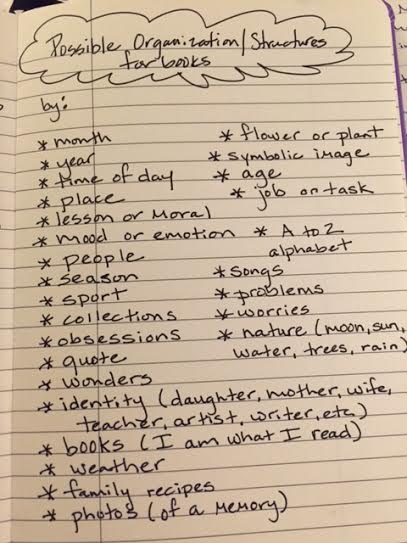 Possible Organization/Structures
for books
by:
* month
* year
* time of day
* place
* lesson or Moral
* mood or emotion
* people
* season
* sport
* collections
* obsessions
* quote
* wonders
* identity (daughter, mother, wife,
teacher, artist, writer, etc)
* books (I am what I read)
* weather
* family recipes
* photos (of a memory)
* flower or plant
* symbolic image
* age
* job or task
* A to Z
alphabet
* songs
* problems
* worries
* nature (moon, sun,
water, trees, rain)